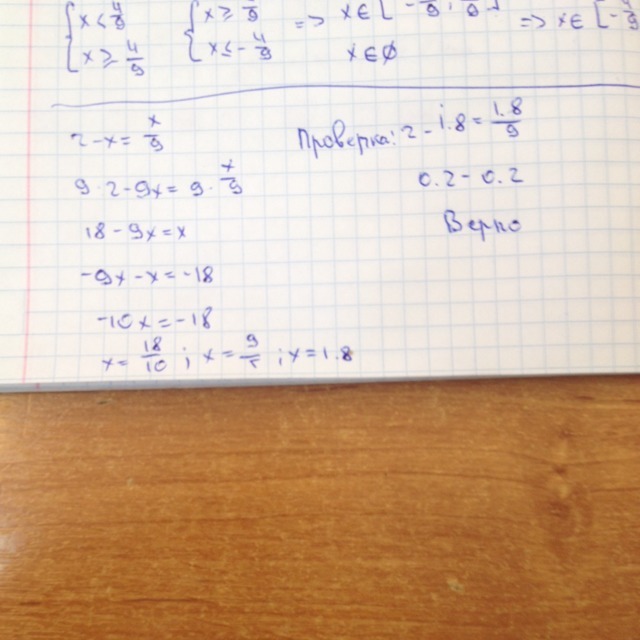 { x < 4/9
x ≥ 4/9
{ x ≥
x ≤ -4/9
=> x ∈ [
x ∈ ∅
=> x ∈ [-
2 - x = x/9
9 · 2 - 9x = 9 · x/9
18 - 9x = x
-9x - x = -18
-10x = -18
x = 18/10 ; x = 9/5 ; x = 1.8
Проверка: 2 - 1.8 = 1.8/9
0.2 - 0.2
Верно